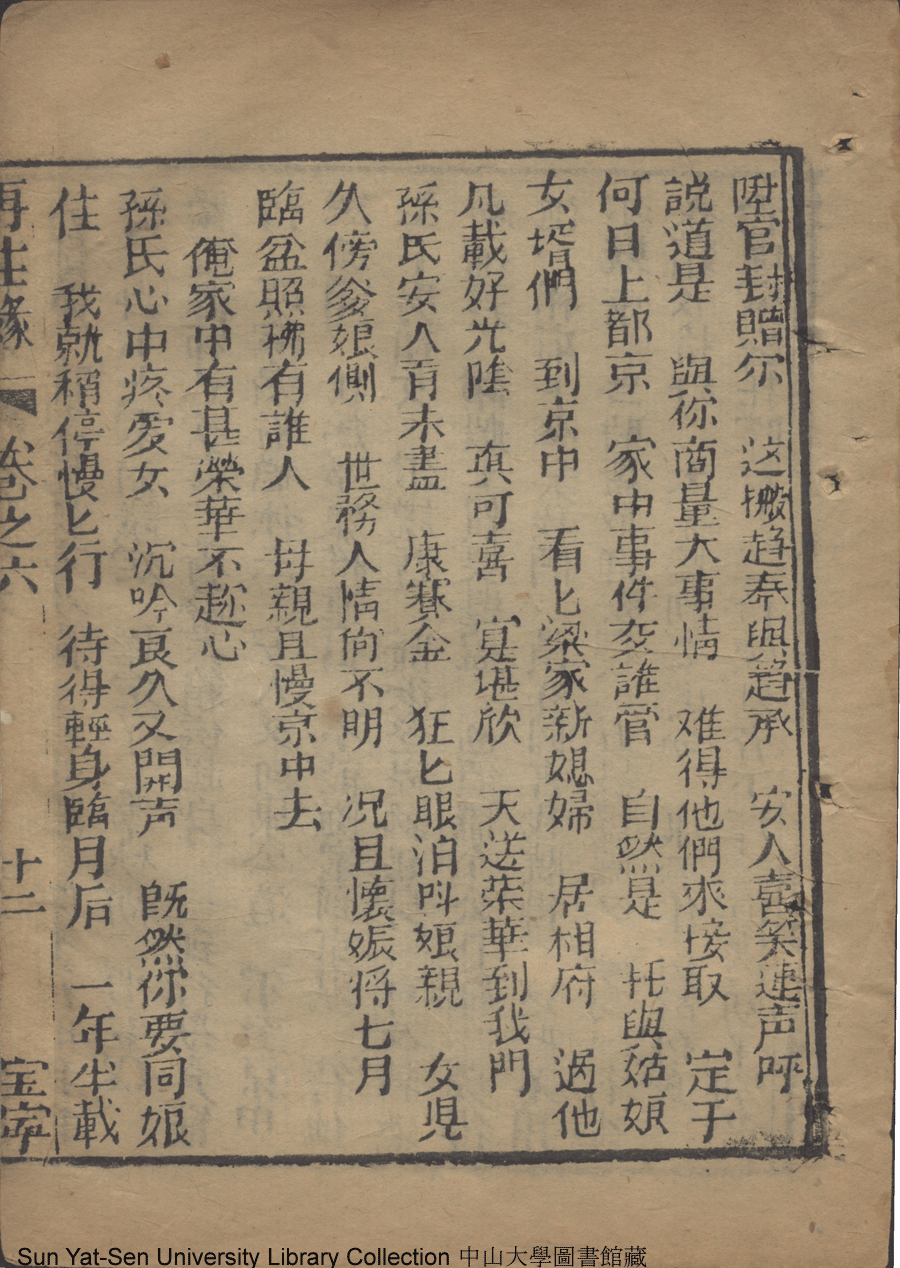 陞官封贈尔 这搬趋奉與趋承 安人喜笑連声呼
説道是 與你商量大事情 难得他們來接取 定于
何日上都京 家中事件交誰管 自然是 托與姑娘
女壻們 到京中 看匕梁家新媳婦 居相府 過他
凡載好光陰 真可喜 寔堪欣 天送荣華到我門
孫氏安人言未盡 康賽金 狂匕眼泪呌娘親 女児
久傍爹娘側 世務人情尚不明 况且懷娠将七月
臨盆照拂有誰人 母親且慢京中去
俺家中有甚榮華不趂心
孫氏心中疼愛女 沉吟良久又開声 既然你要同娘
住 我就稍停慢匕行 待得輕身臨月后 一年半載
再生缘 卷之六 十二 宝寧
Sun Yat-Sen University Library Collection 中山大學圖書館藏